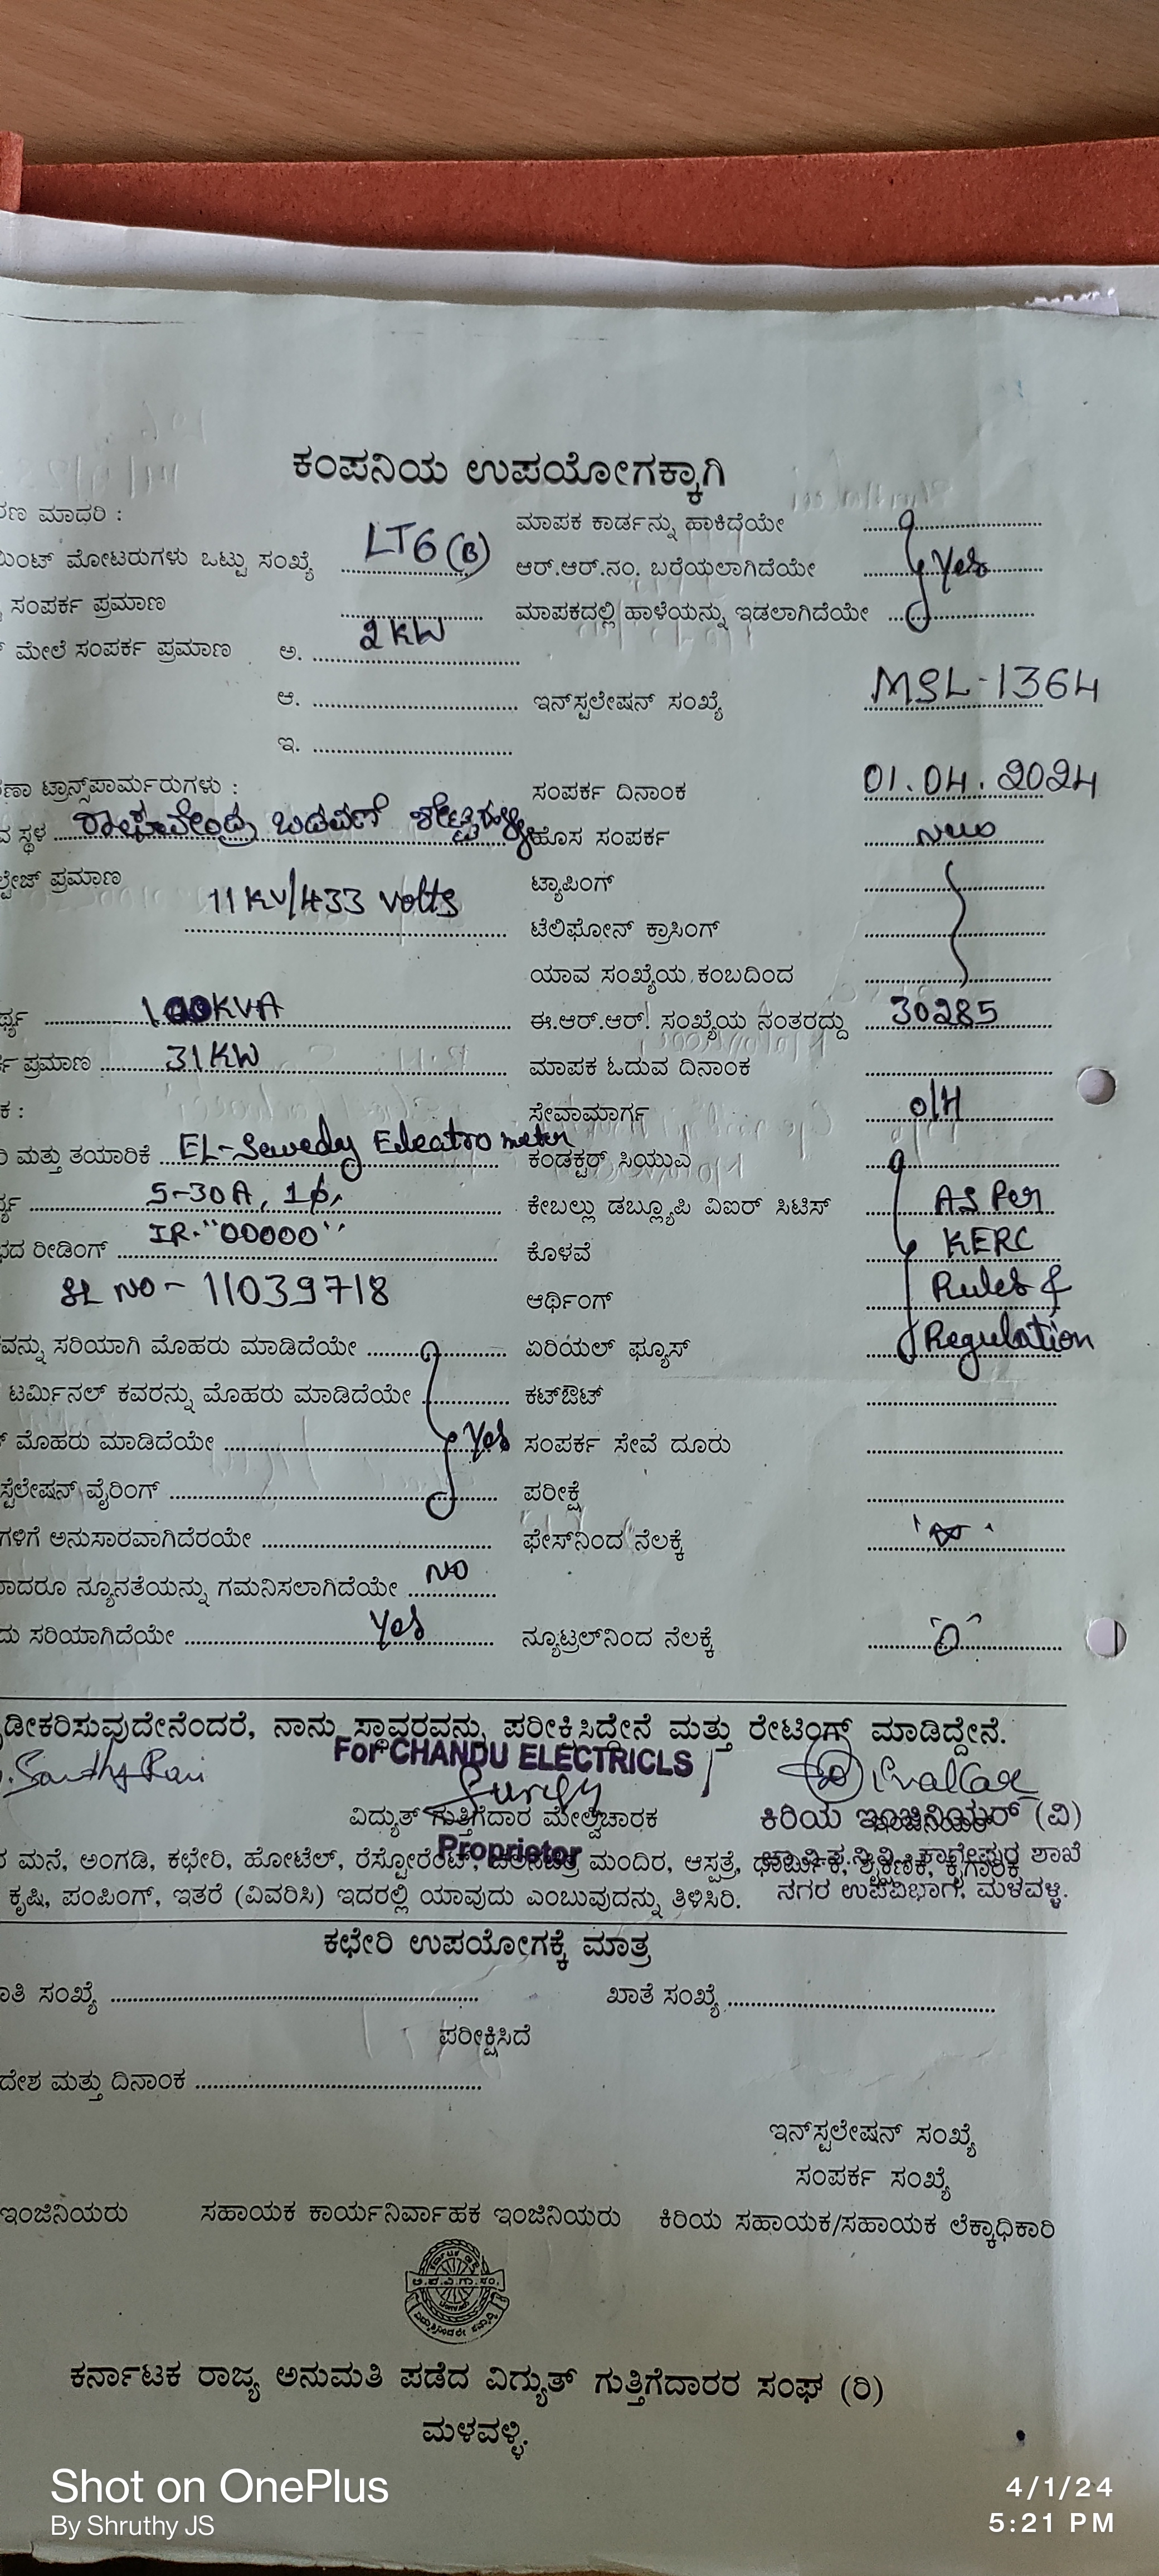 ಕಂಪನಿಯ ಉಪಯೋಗಕ್ಕಾಗಿ
ರಣ ಮಾದರಿ : ಮಾಪಕ ಕಾರ್ಡನ್ನು ಹಾಕಿದೆಯೇ
ಮೋಟರುಗಳು ಒಟ್ಟು ಸಂಖ್ಯೆ LT6(B) ಆರ್.ಆರ್.ನಂ. ಬರೆಯಲಾಗಿದೆಯೇ Yes
ಸಂಪರ್ಕ ಪ್ರಮಾಣ ಮಾಪಕದಲ್ಲಿ ಹಾಳೆಯನ್ನು ಇಡಲಾಗಿದೆಯೇ
ಮೇಲೆ ಸಂಪರ್ಕ ಪ್ರಮಾಣ ಅ. 2KW
ಆ. ಇನ್‌ಸ್ಟಲೇಷನ್ ಸಂಖ್ಯೆ MSL-1364
ಇ.
ಟ್ರಾನ್ಸ್‌ಪಾರ್ಮರುಗಳು : ಸಂಪರ್ಕ ದಿನಾಂಕ 01.04.2024
ಸ್ಥಳ ರಾಘವೇಂದ್ರ ಬಡಾವಣೆ ಹೊಸ ಸಂಪರ್ಕ
ಪ್ರಮಾಣ 11KV/433 volts ಟ್ಯಾಪಿಂಗ್
ಟೆಲಿಫೋನ್ ಕ್ರಾಸಿಂಗ್
ಯಾವ ಸಂಖ್ಯೆಯ ಕಂಬದಿಂದ
100KVA ಈ.ಆರ್.ಆರ್. ಸಂಖ್ಯೆಯ ನಂತರದ್ದು 30285
ಪ್ರಮಾಣ 31KW ಮಾಪಕ ಓದುವ ದಿನಾಂಕ
ಕ : ಸೇವಾಮಾರ್ಗ O/H
ಮತ್ತು ತಯಾರಿಕೆ EL-Sewedy Eleatro meter ಕಂಡಕ್ಟರ್ ಸಿಯುಎ
5-30A, 1ϕ, ಕೇಬಲ್ಲು ಡಬ್ಲ್ಯೂಪಿ ವಿಐರ್ ಸಿಟಿಸ್ AS Per
ರೀಡಿಂಗ್ IR-"00000" ಕೊಳವೆ KERC
SL NO - 11039718 ಆರ್ಥಿಂಗ್ Rules &
ವನ್ನು ಸರಿಯಾಗಿ ಮೊಹರು ಮಾಡಿದೆಯೇ ಏರಿಯಲ್ ಫ್ಯೂಸ್ Regulation
ಟರ್ಮಿನಲ್ ಕವರನ್ನು ಮೊಹರು ಮಾಡಿದೆಯೇ ಕಟ್‌ಔಟ್
ಮೊಹರು ಮಾಡಿದೆಯೇ Yes ಸಂಪರ್ಕ ಸೇವೆ ದೂರು
ಸ್ಟೆಲೇಷನ್ ವೈರಿಂಗ್ ಪರೀಕ್ಷೆ
ಗಳಿಗೆ ಅನುಸಾರವಾಗಿದೆರಯೇ ಫೇಸ್‌ನಿಂದ ನೆಲಕ್ಕೆ
ನ್ಯೂನತೆಯನ್ನು ಗಮನಿಸಲಾಗಿದೆಯೇ NO
ಸರಿಯಾಗಿದೆಯೇ Yes ನ್ಯೂಟ್ರಲ್‌ನಿಂದ ನೆಲಕ್ಕೆ
ಡೀಕರಿಸುವುದೇನೆಂದರೆ, ನಾನು ಸ್ಥಾವರವನ್ನು ಪರೀಕ್ಷಿಸಿದ್ದೇನೆ ಮತ್ತು ರೇಟಿಂಗ್ ಮಾಡಿದ್ದೇನೆ.
For CHANDU ELECTRICLS
ವಿದ್ಯುತ್ ಗುತ್ತಿಗೆದಾರ ಮೇಲ್ವಿಚಾರಕ ಕಿರಿಯ ಇಂಜಿನಿಯರ್ (ವಿ)
Proprietor
ಮನೆ, ಅಂಗಡಿ, ಕಛೇರಿ, ಹೋಟೆಲ್, ರೆಸ್ಟೋರೆಂಟ್, ಮಂದಿರ, ಆಸ್ಪತ್ರೆ, ಶಾಖೆ
ಕೃಷಿ, ಪಂಪಿಂಗ್, ಇತರೆ (ವಿವರಿಸಿ) ಇದರಲ್ಲಿ ಯಾವುದು ಎಂಬುವುದನ್ನು ತಿಳಿಸಿರಿ. ನಗರ ಉಪವಿಭಾಗ, ಮಳವಳ್ಳಿ.
ಕಛೇರಿ ಉಪಯೋಗಕ್ಕೆ ಮಾತ್ರ
ಸಂಖ್ಯೆ ಖಾತೆ ಸಂಖ್ಯೆ
ಪರೀಕ್ಷಿಸಿದೆ
ದೇಶ ಮತ್ತು ದಿನಾಂಕ
ಇನ್‌ಸ್ಟಲೇಷನ್ ಸಂಖ್ಯೆ
ಸಂಪರ್ಕ ಸಂಖ್ಯೆ
ಇಂಜಿನಿಯರು ಸಹಾಯಕ ಕಾರ್ಯನಿರ್ವಾಹಕ ಇಂಜಿನಿಯರು ಕಿರಿಯ ಸಹಾಯಕ/ಸಹಾಯಕ ಲೆಕ್ಕಾಧಿಕಾರಿ
ಕರ್ನಾಟಕ ರಾಜ್ಯ ಅನುಮತಿ ಪಡೆದ ವಿಗ್ಯುತ್ ಗುತ್ತಿಗೆದಾರರ ಸಂಘ (ರಿ)
ಮಳವಳ್ಳಿ.
Shot on OnePlus 4/1/24
By Shruthy JS 5:21 PM